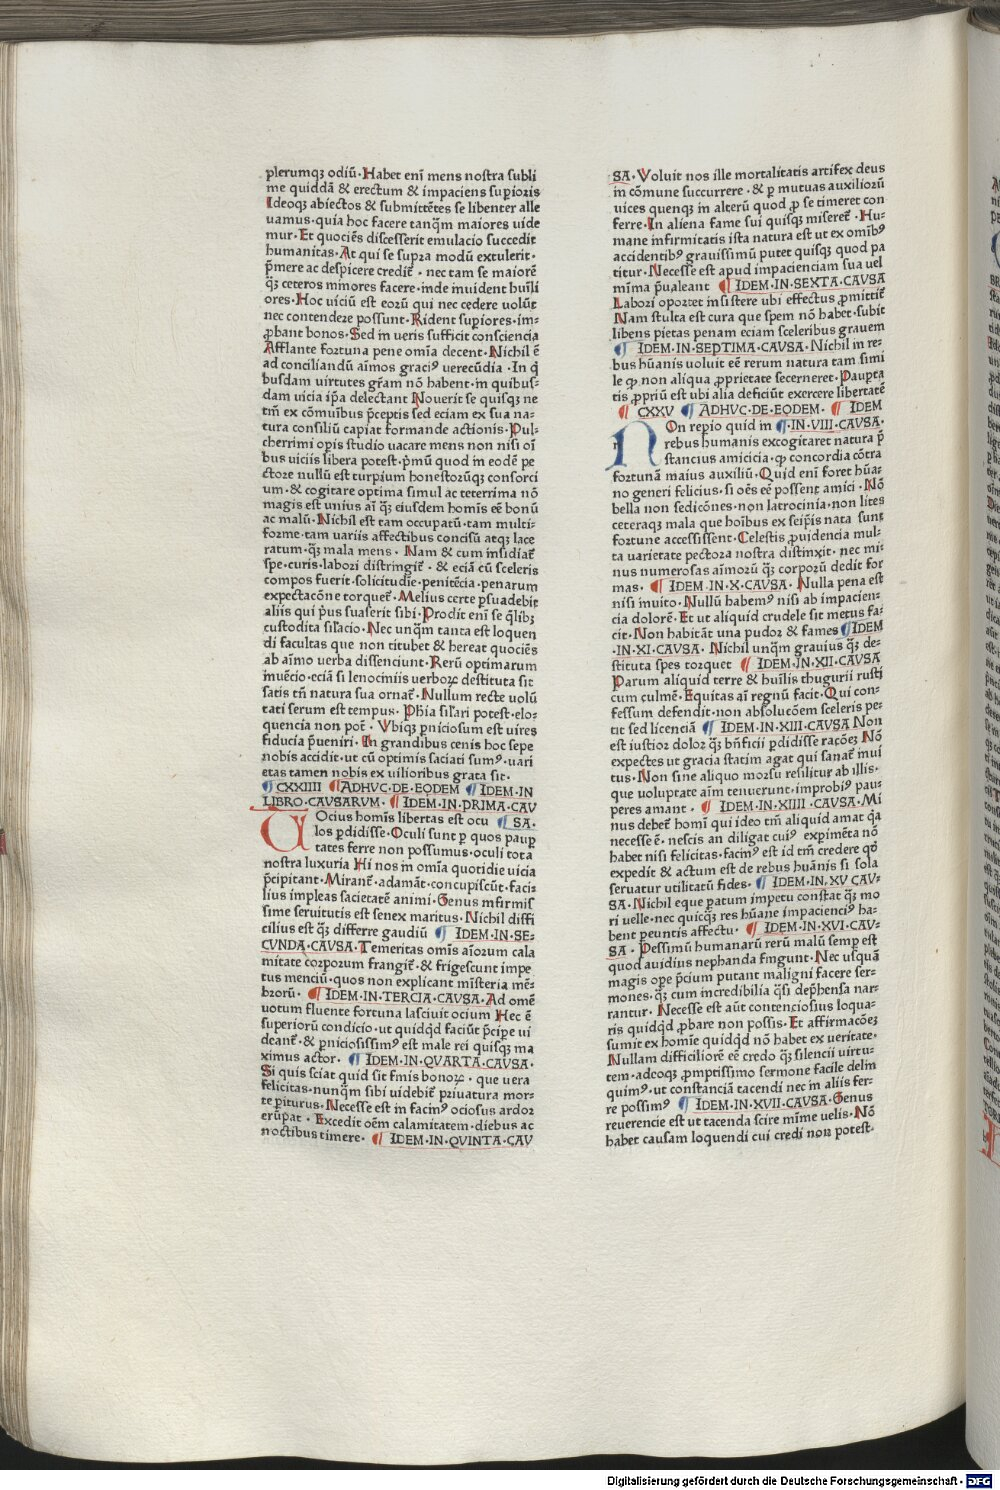 plerumqꝫ odiū·Habet enī mens nostra subli
me quiddā & erectum & impaciens supioris
Ideoqꝫ abiectos & submittētes se libenter alle
uamus·quia hoc facere tanq̄m maiores uide
mur·Et quociēs discesserit emulacio succedit
humanitas·At qui se supra modū extulerit·
p̄mere ac despicere credit᷑·nec tam se maiorē
q̄ꝫ ceteros minores facere·inde inuident hūili
ores·Hoc uiciū est eorū qui nec cedere uolūt
nec contendere possunt·Rident supiores·im⸗
ꝓbant bonos·Sed in ueris sufficit consciencia
Afflante fortuna pene om̄ia decent·Nichil ē
ad conciliandū aīmos graciꝰ uerecūdia·In q̄
busdam uirtutes gr̄am nō habent·in quibus⸗
dam uicia ip̄a delectant Nouerit se quisqꝫ ne
tm̄ ex cōmuībus p̄ceptis sed eciam ex sua na⸗
tura consiliū capiat formande actionis·Pul⸗
cherrimi opis studio uacare mens non nisi oī
bus uiciis libera potest·p̄mū quod in eodē pe
ctore nullū est turpium honestorūqꝫ consorci
um·& cogitare optima simul ac teterrima nō
magis est unius aī q̄ꝫ eiusdem homīs eē bonū
ac malū·Nichil est tam occupatū·tam multi⸗
forme·tam uariis affectibus concisū atqꝫ lace
ratum·q̄ꝫ mala mens·Nam & cum insidiat᷑
spe·curis·labori distringit᷑·& eciā cū sceleris
compos fuerit·solicitudīe·penitēcia·penarum
expectacōne torquet᷑·Melius certe ꝑsuadebit
aliis qui p̄us suaserit sibi·Prodit enī se q̄libꝫ
custodita sil̄acio·Nec unq̄m tanta est loquen
di facultas que non titubet & hereat quociēs
ab aīmo uerba dissenciunt·Rerū optimarum
inuēcio·eciā si lenociniis uerboꝝ destituta sit
satis tn̄ natura sua ornat᷑·Nullum recte uolū
tati serum est tempus·Phīa sil̄ari potest·elo⸗
quencia non pot̄·Vbiqꝫ ꝑniciosum est uires
fiducia p̄ueniri·In grandibus cenis hoc sepe
nobis accidit·ut cū optimis saciati sumꝰ·uari
etas tamen nobis ex uilioribus grata sit·
¶ CXXIIII ¶ ADHVC·DE·EODEM ¶ IDEM·IN
LIBRO·CAVSARVM·¶ IDEM·IN·PRIMA·CAV
Ocius homīs libertas est ocu ¶ SA·
los ꝑdidisse·Oculi sunt ꝑ quos paup
tates ferre non possumus·oculi tota
nostra luxuria Hi nos in om̄ia quotidie uicia
p̄cipitant·Mirant᷑·adamāt·concupiscūt·faci⸗
lius impleas sacietatē animi·Genus infirmis
sime seruitutis est senex maritus·Nichil diffi
cilius est q̄ꝫ differre gaudiū ¶ IDEM·IN·SE⸗
CVNDA·CAVSA·Temeritas omīs aīorum cala
mitate corporum frangit᷑·& frigescunt impe
tus menciū·quos non explicant mīsteria mē⸗
brorū·¶ IDEM·IN·TERCIA·CAVSA·Ad omē
uotum fluente fortuna lasciuit ocium Hec ē
superiorū condicio·ut quidq̄d faciūt p̄cipe ui
deant᷑·& ꝑniciosissimꝰ est male rei quisqꝫ ma
ximus actor·¶ IDEM·IN·QVARTA·CAVSA·
Si quis sciat quid sit fmis bonoꝝ·que uera
felicitas·nunq̄m sibi uidebit᷑ priuatura mor⸗
te ꝑiturus·Necesse est in facinꝰ ociosus ardor
erūpat·Excedit oēm calamitatem·diebus ac
noctibus timere·¶ IDEM·IN·QVINTA·CAV
SA·Voluit nos ille mortalitatis artifex deus
in cōmune succurrere·& ꝑ mutuas auxiliorū
uices quenqꝫ in alterū quod ꝓ se timeret con
ferre·In aliena fame sui quisqꝫ miseret᷑·Hu⸗
mane infirmitatis ista natura est ut ex omībꝰ
accidentibꝰ grauissimū putet quisqꝫ quod pa
titur·Necesse est apud impacienciam sua uel
mīma p̄ualeant ¶ IDEM·IN·SEXTA·CAVSA
Labori oportet insistere ubi effectus ꝓmittit᷑
Nam stulta est cura que spem nō habet·subit
libens pietas penam eciam sceleribus grauem
¶ IDEM·IN·SEPTIMA·CAVSA·Nichil in re⸗
bus hūanis uoluit eē rerum natura tam simi
le ꝙ non aliqua ꝓprietate secerneret·Paupta
tis ꝓpriū est ubi alia deficiūt exercere libertatē
¶ CXXV ¶ ADHVC·DE·EODEM·¶ IDEM
NOn repio quid in ¶·IN·VIII·CAVSA·
rebus humanis excogitaret natura p̄
stancius amicicia·ꝙ concordia cōtra
fortunā maius auxiliū·Quid enī foret hūa⸗
no generi felicius·si oēs eē possent amici·Nō
bella non sedicōnes·non latrocinia·non lites
ceteraqꝫ mala que hoībus ex seip̄is nata sunt
fortune accessissent·Celestis ꝓuidencia mul⸗
ta uarietate pectora nostra distinxit·nec mi⸗
nus numerosas aīmorū q̄ꝫ corporū dedit for
mas·¶ IDEM·IN·X·CAVSA·Nulla pena est
nisi inuito·Nullū habemꝰ nisi ab impacien⸗
cia dolorē·Et ut aliquid crudele sit metus fa⸗
cit·Non habitāt una pudor & fames ¶ IDEM
·IN·XI·CAVSA·Nichil unq̄m grauius q̄ꝫ de⸗
stituta spes torquet ¶ IDEM·IN·XII·CAVSA
Parum aliquid terre & hūilis thugurii rusti
cum culmē·Equitas aī regnū facit·Qui con⸗
fessum defendit·non absolucōem sceleris pe⸗
tit sed licenciā ¶ IDEM·IN·XIII·CAVSA Non
est iustior dolor q̄ꝫ bn̄ficii ꝑdidisse racōeꝫ Nō
expectes ut gracia statim agat qui sanat᷑ inui
tus·Non sine aliquo morsu resilitur ab illis·
que uoluptate aīm tenuerunt·improbiꝰ pau⸗
peres amant·¶ IDEM·IN·XIIII·CAVSA·Mi
nus debet᷑ homī qui ideo tm̄ aliquid amat q̄a
necesse ē·nescis an diligat cuiꝰ expimēta nō
habet nisi felicitas·facinꝰ est id tm̄ credere qd̄
expedit & actum est de rebus hūanis si sola
seruatur utilitatū fides·¶ IDEM·IN·XV CAV⸗
SA·Nichil eque patum impetu constat q̄ꝫ mo
ri uelle·nec quicqꝫ res hūane impacienciꝰ ha⸗
bent peuntis affectu·¶ IDEM·IN·XVI·CAV⸗
SA·Pessimū humanarū rerū malū semꝑ est
quod auidius nephanda fingunt·Nec usquā
magis ope p̄cium putant maligni facere ser⸗
mones·q̄ꝫ cum incredibilia q̄si dep̄hensa nar⸗
rantur·Necesse est aūt contenciosius loqua⸗
ris quidq̄d ꝓbare non possis·Et affirmacōeꝫ
sumit ex homīe quidq̄d nō habet ex ueritate·
Nullam difficiliorē eē credo q̄ꝫ silencii uirtu⸗
tem·adcoqꝫ ꝓmptissimo sermone facile delin
quimꝰ·ut constanciā tacendi nec in aliis fer⸗
re possimꝰ ¶ IDEM·IN·XVII·CAVSA·Genus
reuerencie est ut tacenda scire mīme uelis·Nō
habet causam loquendi cui credi non potest·
Digitalisierung gefördert durch die Deutsche Forschungsgemeinschaft - DFG